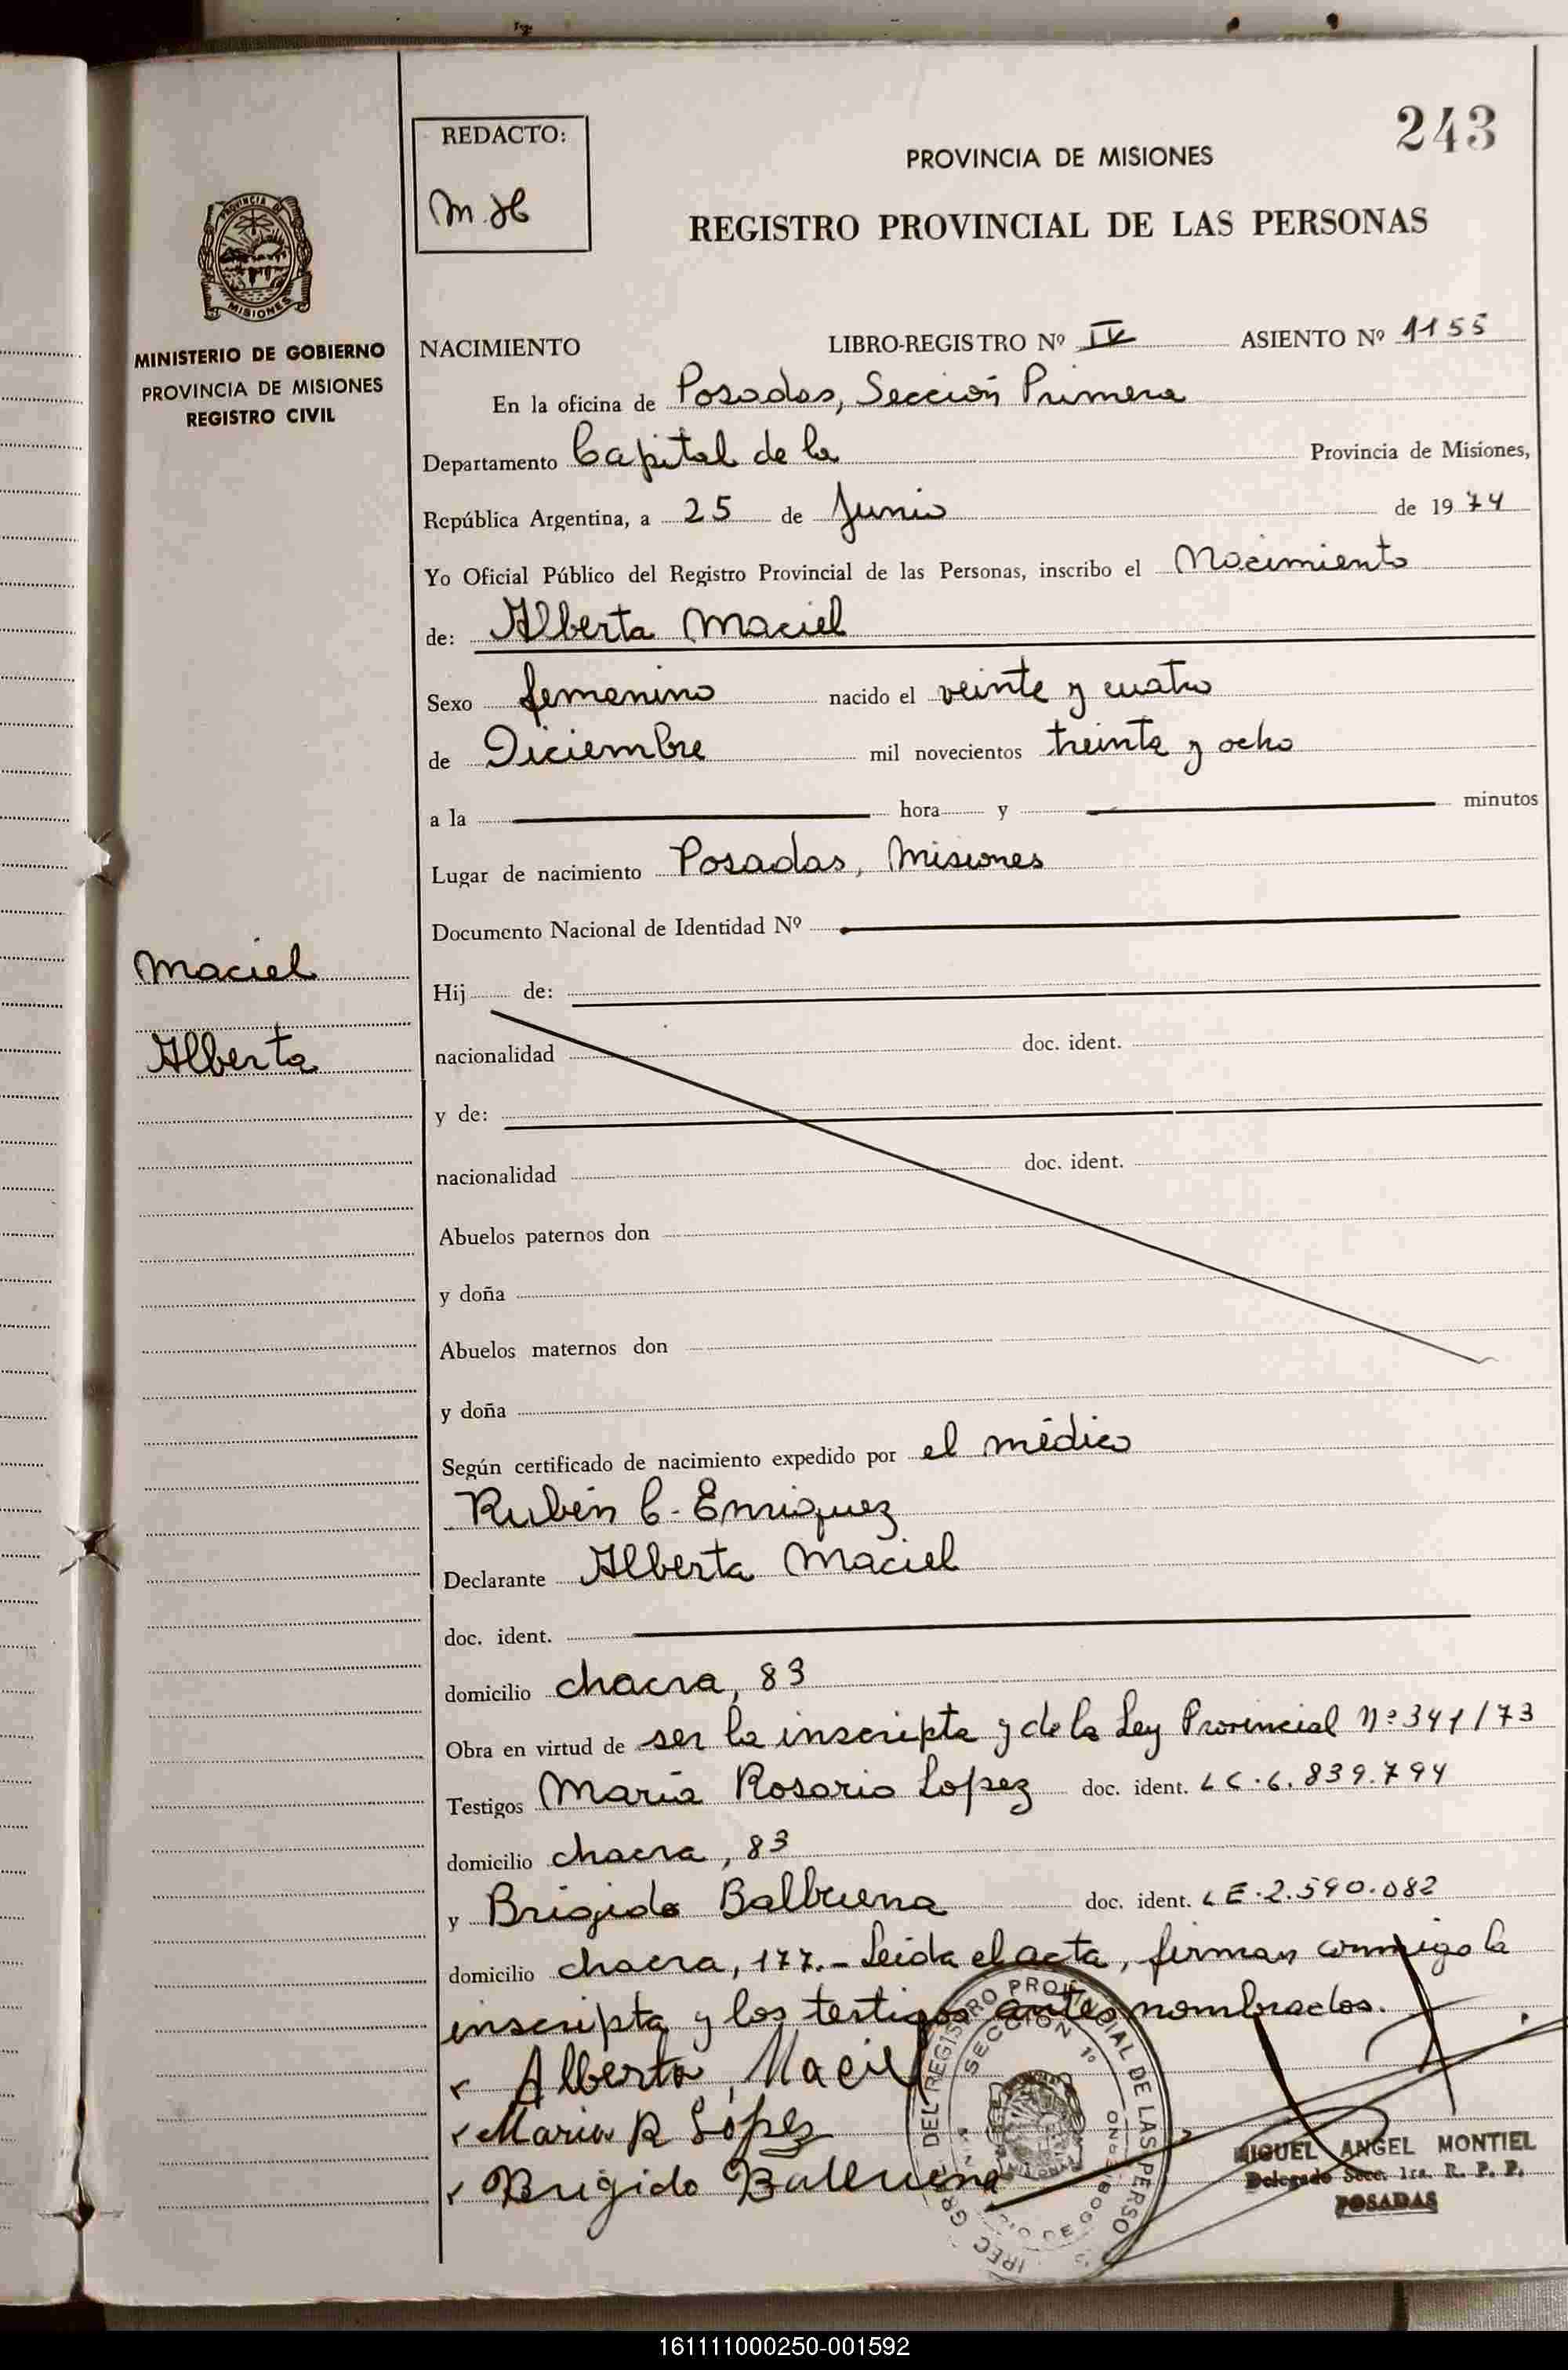 243
REDACTO:
M.H
PROVINCIA DE MISIONES
REGISTRO PROVINCIAL DE LAS PERSONAS
PROVINCIA DE
MISIONES
MINISTERIO DE GOBIERNO
PROVINCIA DE MISIONES
REGISTRO CIVIL
NACIMIENTO LIBRO-REGISTRO Nº IV ASIENTO Nº 1155
En la oficina de Posadas, Sección Primera
Departamento Capital de la Provincia de Misiones,
República Argentina, a 25 de Junio de 1974
Yo Oficial Público del Registro Provincial de las Personas, inscribo el Nacimiento
de: Alberta Maciel
Sexo femenino nacido el veinte y cuatro
de Diciembre mil novecientos treinta y ocho
a la hora y minutos
Lugar de nacimiento Posadas, Misiones
Documento Nacional de Identidad Nº
Maciel
Alberta
Hij de:
nacionalidad doc. ident.
y de:
nacionalidad doc. ident.
Abuelos paternos don
y doña
Abuelos maternos don
y doña
Según certificado de nacimiento expedido por el médico
Rubén C. Enriquez
Declarante Alberta Maciel
doc. ident.
domicilio chacra, 83
Obra en virtud de ser la inscripta y de la Ley Provincial Nº 341/73
Testigos María Rosario Lopez doc. ident. LC.6.839.794
domicilio chacra, 83
y Brigido Balbuena doc. ident. LE.2.590.082
domicilio chacra, 177.- Leída el acta, firman conmigo la
inscripta y los testigos antes nombrados.
Alberta, Maciel
Maria R López
Brigido Balbuena
DEL REGISTRO PROVINCIAL DE LAS PERSO
SECCION 1º
MIGUEL ANGEL MONTIEL
Delegado Secc. 1ra. R. P. P.
POSADAS
161111000250-001592